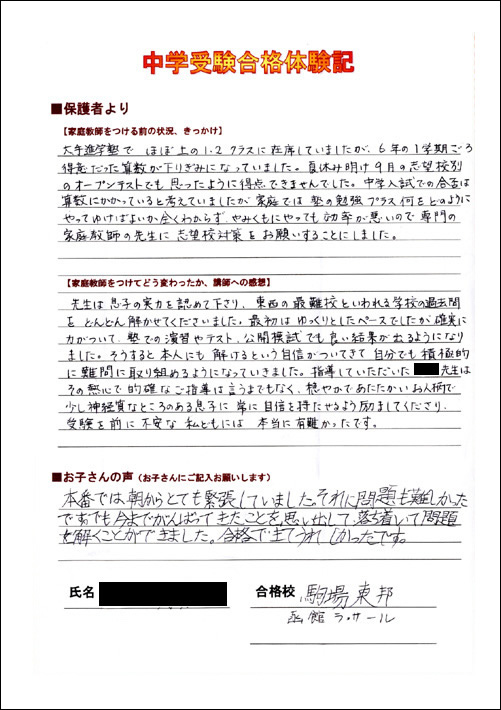 中学受験合格体験記
■保護者より
【家庭教師をつける前の状況、きっかけ】
大手進学塾で ほぼ上の1・2クラスに在席していましたが、6年の1学期ごろ
得意だった算数が下りぎみになっていました。夏休み明け9月の志望校別
のオープンテストでも思ったように得点できませんでした。中学入試での合否は
算数にかかっていると考えていましたが 家庭では 塾の勉強プラス何をどのように
やってゆけばよいか全くわからず、やみくもにやっても効率が悪いので専門の
家庭教師の先生に志望校対策をお願いすることにしました。
【家庭教師をつけてどう変わったか、講師への感想】
先生は息子の実力を認めて下さり、東西の最難校といわれる学校の過去問
を どんどん解かせてくださいました。最初はゆっくりとしたペースでしたが確実に
力がついて、塾での演習やテスト、公開模試でも良い結果が出るようになり
ました。そうすると本人にも 解けるという自信がついてきて自分でも積極的
に難問に取り組めるようになっていきました。指導していただいた 先生は
その熱心で的確なご指導は言うまでもなく、穏やかであたたかいお人柄で
少し神経質なところのある息子に 常に自信を持たせるよう励ましてくださり、
受験を前に不安な私どもには 本当に有難かったです。
■お子さんの声（お子さんにご記入お願いします）
本番では、朝からとても緊張していました。それに問題も難しかった
です。でも今までがんばってきたことを思い出して、落ち着いて問題
を解くことができました。合格できてうれしかったです。
氏名
合格校 駒場東邦
函館ラ・サール